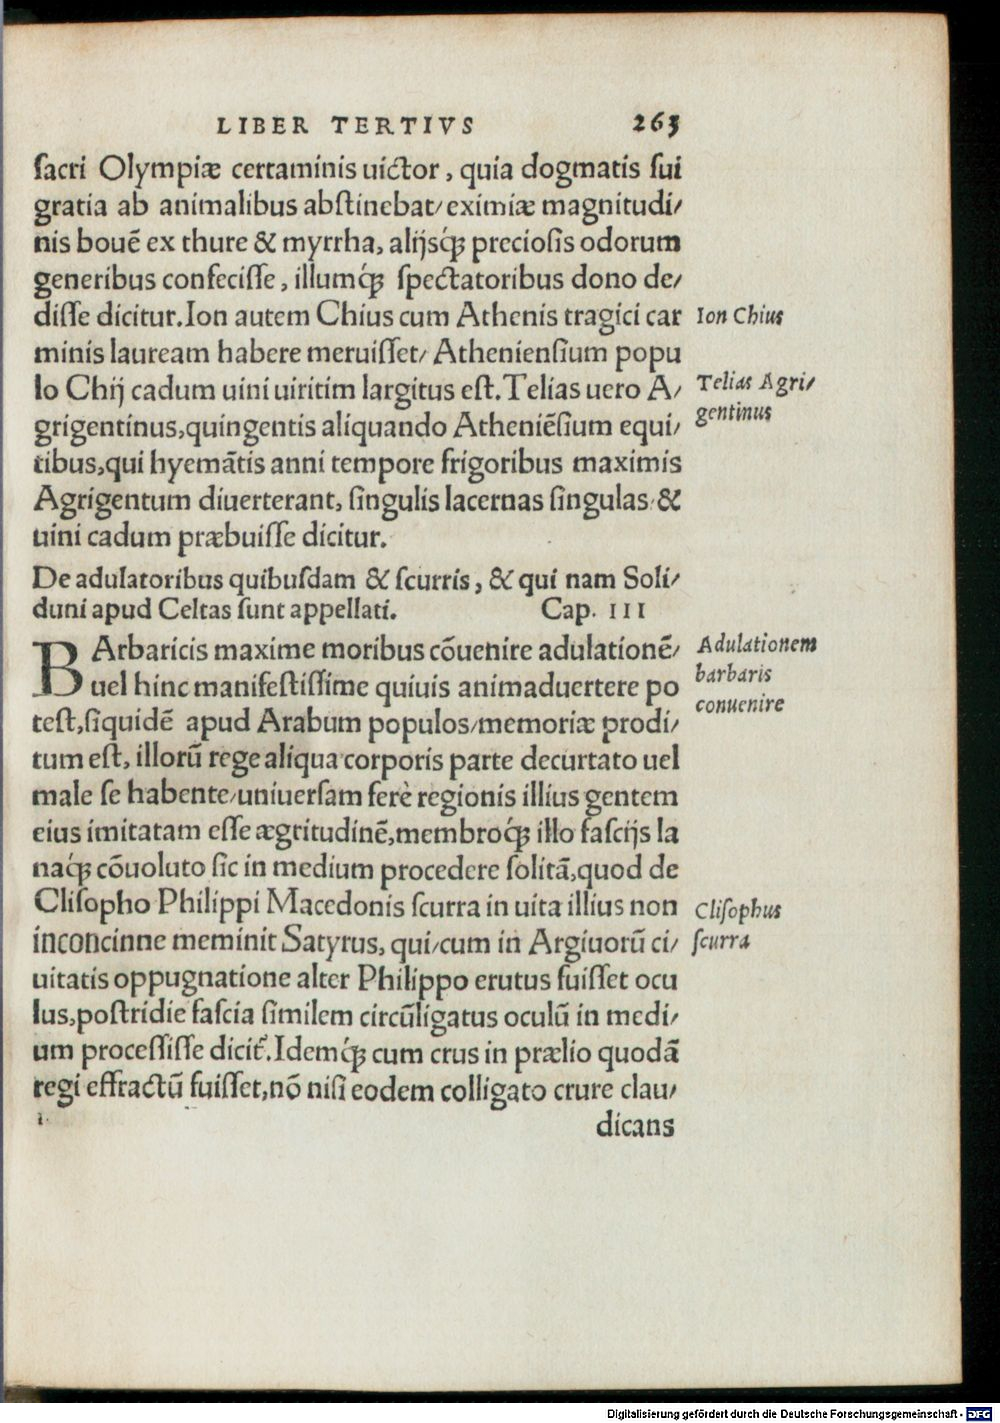 LIBER TERTIVS 263
ſacri Olympiæ certaminis uictor, quia dogmatis ſui
gratia ab animalibus abſtinebat/ eximiæ magnitudi/
nis bouē ex thure & myrrha, alijsq́ꝫ precioſis odorum
generibus confeciſſe, illumq́ꝫ ſpectatoribus dono de/
diſſe dicitur. Ion autem Chius cum Athenis tragici car
minis lauream habere meruiſſet/ Athenienſium popu
lo Chij cadum uini uiritim largitus eſt. Telias uero A/
grigentinus, quingentis aliquando Atheniēſium equi/
tibus, qui hyemātis anni tempore frigoribus maximis
Agrigentum diuerterant, ſingulis lacernas ſingulas/ &
uini cadum præbuiſſe dicitur.
Ion Chius
Telias Agri/
gentinus
De adulatoribus quibuſdam & ſcurris, & qui nam Soli/
duni apud Celtas ſunt appellati. Cap. III
BArbaricis maxime moribus cōuenire adulationē/
uel hinc manifeſtiſſime quiuis animaduertere po
teſt, ſiquidē apud Arabum populos/ memoriæ prodi/
tum eſt, illorū rege aliqua corporis parte decurtato uel
male ſe habente/ uniuerſam ferè regionis illius gentem
eius imitatam eſſe ægritudinē, membroq́ꝫ illo faſcijs la
naq́ꝫ cōuoluto ſic in medium procedere ſolitā, quod de
Cliſopho Philippi Macedonis ſcurra in uita illius non
inconcinne meminit Satyrus, qui/ cum in Argiuorū ci/
uitatis oppugnatione alter Philippo erutus fuiſſet ocu
lus, poſtridie faſcia ſimilem circūligatus oculū in medi/
um proceſſiſſe dicit᷒. Idemq́ꝫ cum crus in prælio quodā
regi effractū fuiſſet, nō niſi eodem colligato crure clau/
dicans
Adulationem
barbaris
conuenire
Cliſophus
ſcurra
Digitalisierung gefördert durch die Deutsche Forschungsgemeinschaft - DFG